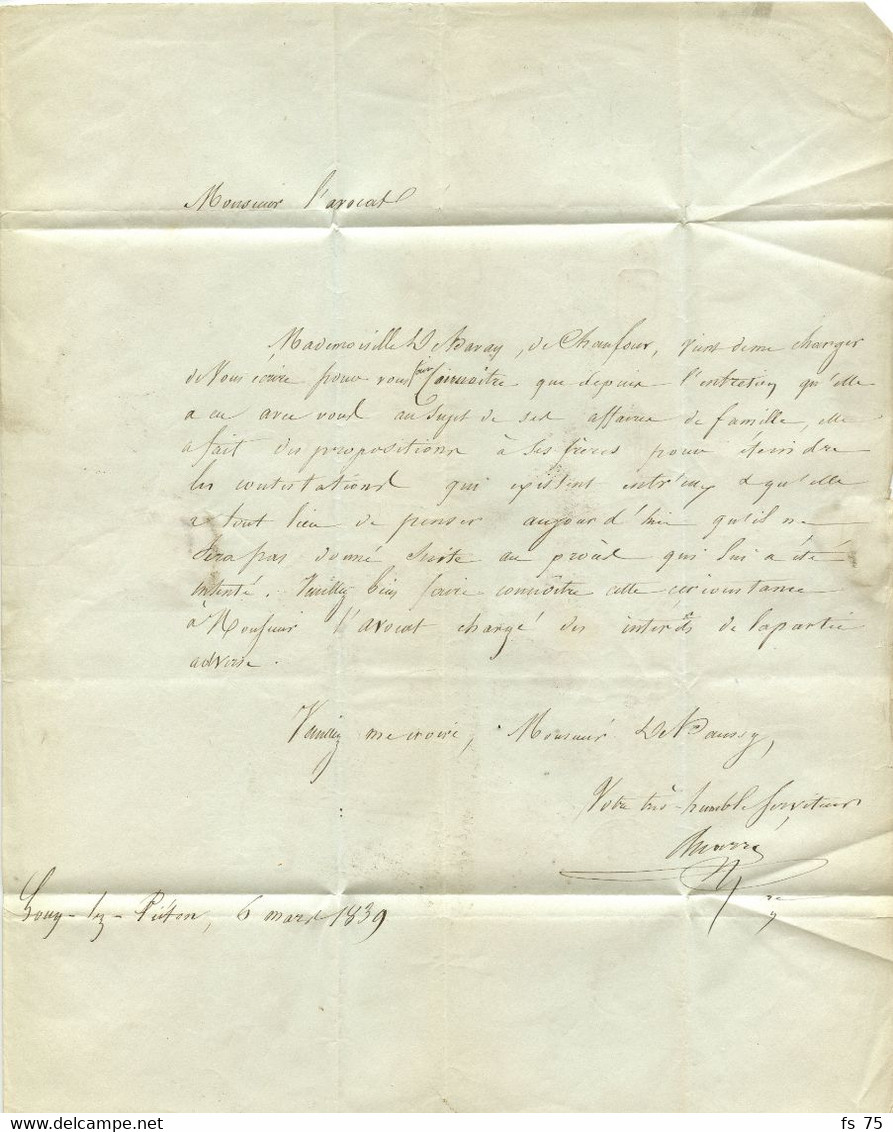 Monsieur l'avocat
Mademoiselle De Bavay, de Chaufour, vient de me charger
de vous écrire pour vous faire Connaître que depuis l'entretien qu'elle
a eu avec vous au sujet de ses affaires de famille, elle
a fait des propositions à ses frères pour éteindre
les contestations qui existent entr'eux & qu'elle
a tout lieu de penser aujourd'hui qu'il ne
sera pas donné suite au procès qui lui a été
intenté. Veuillez bien faire connaître cette circonstance
à Monsieur l'avocat chargé des intérêts de la partie
adverse.
Veuillez me croire, Monsieur De
Votre très-humble Serviteur
Gouy-lez-Piéton, 6 mars 1839
fs 75